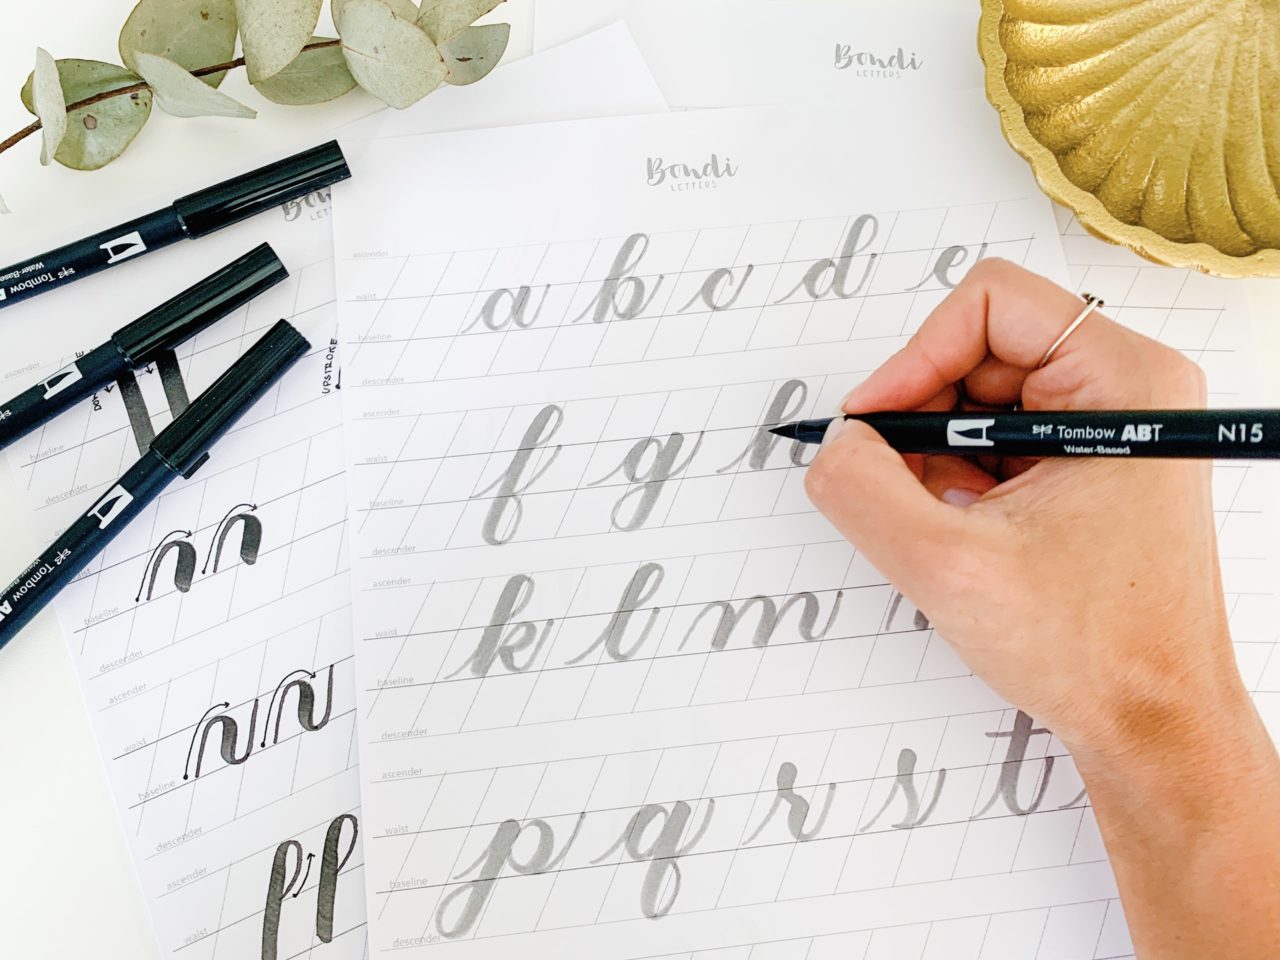 Bondi
LETTERS
Bondi
LETTERS
ascender
a b c d e
waist
baseline
descender
ascender
f g h
waist
baseline
descender
ascender
k l m
waist
baseline
descender
ascender
p q r s t
waist
baseline
descender
Tombow ABT N15
Water-Based
Tombow
Water-Based
Tombow
Tombow
UPSTROKE
ascender
baseline
descender
waist
baseline
descender
ascender
waist
baseline
descender
ascender
waist